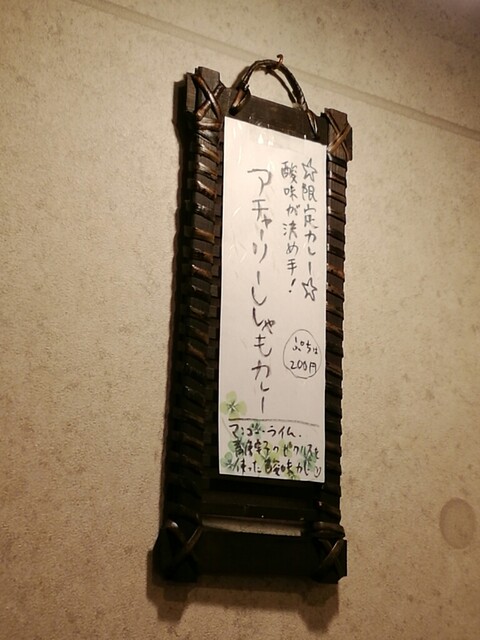 ☆限定カレー☆
酸味が決め手！
アチャーリーししゃもカレー
ぷちは
200円
マンゴー・ライム、
青唐辛子のピクルスを
使った酸味カレー